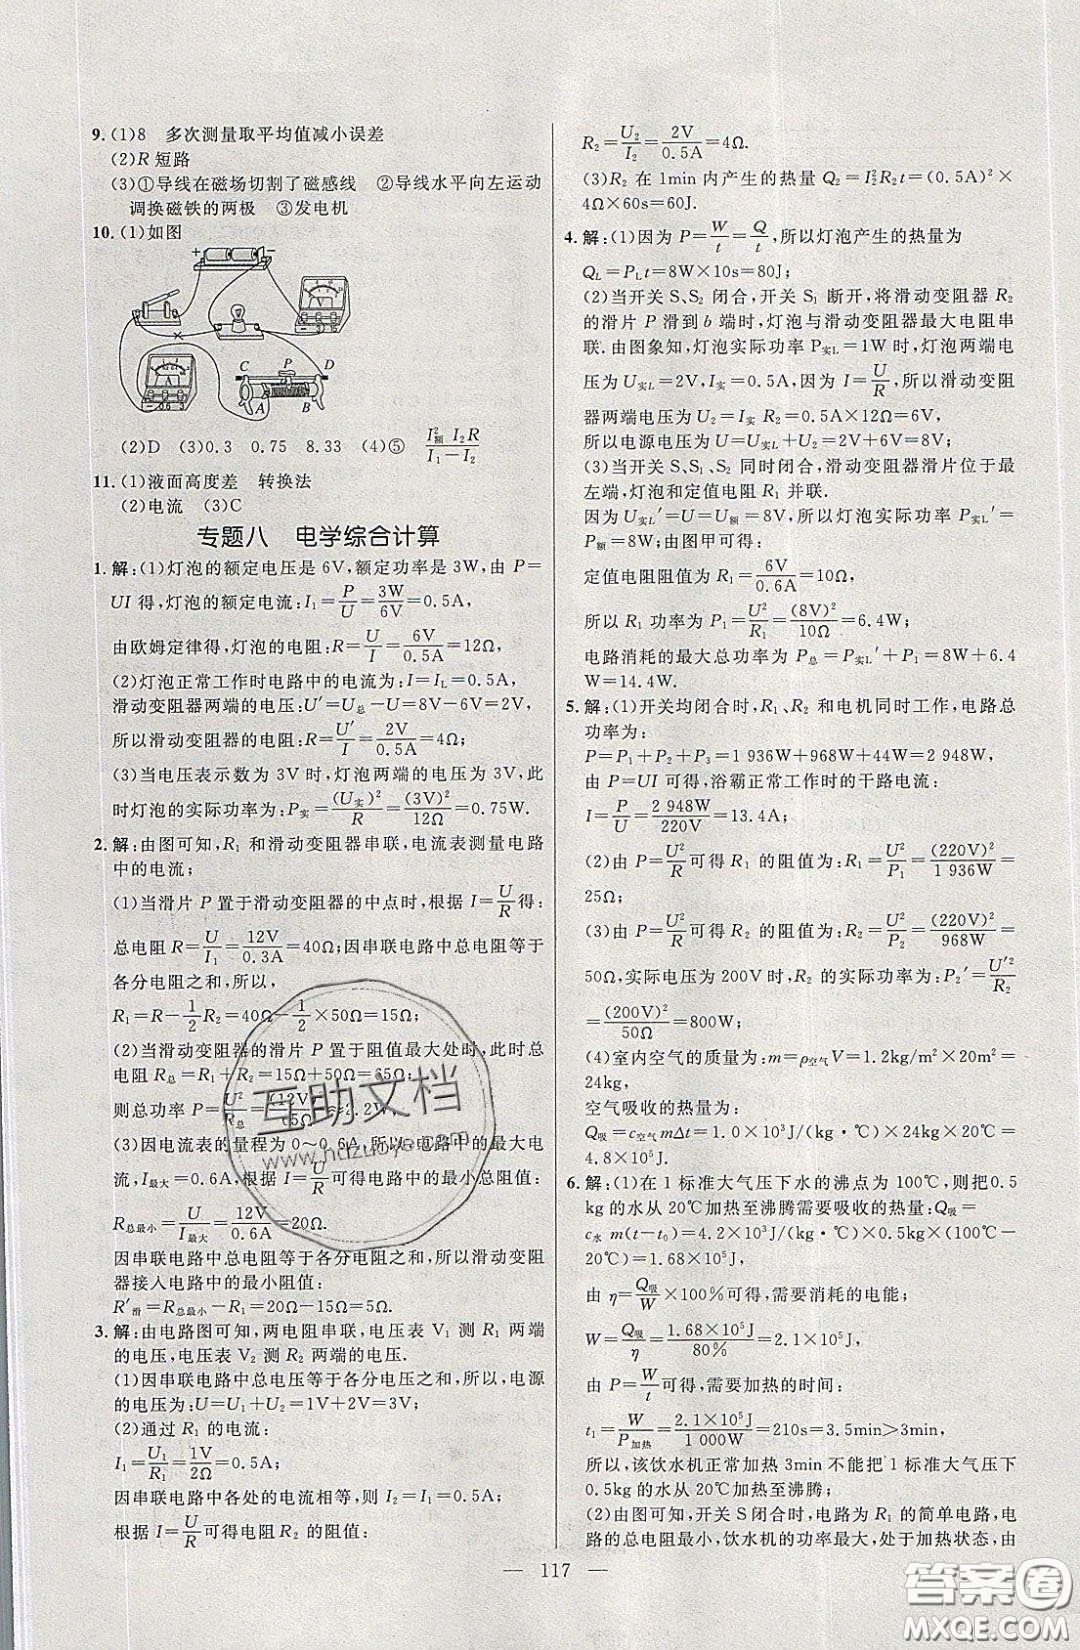 9. (1)8 多次测量取平均值减小误差
(2)R 短路
(3)①导线在磁场切割了磁感线 ②导线水平向左运动
调换磁铁的两极 ③发电机
10. (1)如图
C P D
A B
(2)D (3)0.3 0.75 8.33 (4)⑤ I²额 I₂R/(I₁－I₂)
11. (1)液面高度差 转换法
(2)电流 (3)C
专题八 电学综合计算
1. 解:(1)灯泡的额定电压是 6V,额定功率是 3W,由 P=
UI 得,灯泡的额定电流:I₁=P/U=3W/6V=0.5A,
由欧姆定律得,灯泡的电阻:R=U/I=6V/0.5A=12Ω.
(2)灯泡正常工作时电路中的电流为:I=I_L=0.5A,
滑动变阻器两端的电压:U′=U总－U=8V－6V=2V,
所以滑动变阻器的电阻:R=U′/I=2V/0.5A=4Ω.
(3)当电压表示数为 3V 时,灯泡两端的电压为 3V,此
时灯泡的实际功率为:P实=(U实)²/R=(3V)²/12Ω=0.75W.
2. 解:由图可知,R₁ 和滑动变阻器串联,电流表测量电路
中的电流;
(1)当滑片 P 置于滑动变阻器的中点时,根据 I=U/R得:
总电阻 R=U/I₁=12V/0.3A=40Ω;因串联电路中总电阻等于
各分电阻之和,所以,
R₁=R－1/2R₂=40Ω－1/2×50Ω=15Ω;
(2)当滑动变阻器的滑片 P 置于阻值最大处时,此时总
电阻 R总=R₁+R₂=15Ω+50Ω=65Ω
则总功率 P=U²/R总=(12V)²/65Ω≈2.2W.
(3)因电流表的量程为 0～0.6A,所以,电路中的最大电
流,I最大=0.6A,根据 I=U/R可得电路中的最小总阻值:
R总最小=U/I最大=12V/0.6A=20Ω.
因串联电路中总电阻等于各分电阻之和,所以滑动变阻
器接入电路中的最小阻值:
R′滑=R总最小－R₁=20Ω－15Ω=5Ω.
3. 解:由电路图可知,两电阻串联,电压表 V₁ 测 R₁ 两端
的电压,电压表 V₂ 测 R₂ 两端的电压.
(1)因串联电路中总电压等于各分电压之和,所以,电源
的电压为:U=U₁+U₂=1V+2V=3V;
(2)通过 R₁ 的电流:
I₁=U₁/R₁=1V/2Ω=0.5A;
因串联电路中各处的电流相等,所以 I₂=I₁=0.5A;
根据 I=U/R可得电阻 R₂ 的阻值:
R₂=U₂/I₂=2V/0.5A=4Ω.
(3)R₂ 在 1min 内产生的热量 Q₂=I₂²R₂t=(0.5A)²×
4Ω×60s=60J.
4. 解:(1)因为 P=W/t=Q/t,所以灯泡产生的热量为
Q_L=P_Lt=8W×10s=80J;
(2)当开关 S、S₂ 闭合,开关 S₁ 断开,将滑动变阻器 R₂
的滑片 P 滑到 b 端时,灯泡与滑动变阻器最大电阻串
联.由图象知,灯泡实际功率 P实L=1W 时,灯泡两端电
压为 U实L=2V,I实=0.5A,因为 I=U/R,所以滑动变阻
器两端电压为 U₂=I实 R₂=0.5A×12Ω=6V,
所以电源电压为 U=U实L+U₂=2V+6V=8V;
(3)当开关 S、S₁、S₂ 同时闭合,滑动变阻器滑片位于最
左端,灯泡和定值电阻 R₁ 并联.
因为 U实L′=U=U额=8V,所以灯泡实际功率为 P实L′=
P额=8W;由图甲可得:
定值电阻阻值为 R₁=6V/0.6A=10Ω,
所以 R₁ 功率为 P₁=U²/R₁=(8V)²/10Ω=6.4W,
电路消耗的最大总功率为 P总=P实L′+P₁=8W+6.4
W=14.4W.
5. 解:(1)开关均闭合时,R₁、R₂ 和电机同时工作,电路总
功率为:
P=P₁+P₂+P₃=1 936W+968W+44W=2 948W;
由 P=UI 可得,浴霸正常工作时的干路电流:
I=P/U=2 948W/220V=13.4A;
(2)由 P=U²/R可得 R₁ 的阻值为:R₁=U²/P₁=(220V)²/1 936W=
25Ω;
(3)由 P=U²/R可得 R₂ 的阻值为:R₂=U²/P₂=(220V)²/968W=
50Ω,实际电压为 200V 时,R₂ 的实际功率为:P₂′=U′²/R₂
=(200V)²/50Ω=800W;
(4)室内空气的质量为:m=ρ空气V=1.2kg/m²×20m²=
24kg,
空气吸收的热量为:
Q吸=c空气mΔt=1.0×10³J/(kg·℃)×24kg×20℃=
4.8×10⁵J.
6. 解:(1)在 1 标准大气压下水的沸点为 100℃,则把0.5
kg 的水从 20℃加热至沸腾需要吸收的热量:Q吸=
c水 m(t－t₀)=4.2×10³J/(kg·℃)×0.5kg×(100℃－
20℃)=1.68×10⁵J,
由 η=Q吸/W×100%可得,需要消耗的电能;
W=Q吸/η=1.68×10⁵J/80%=2.1×10⁵J,
由 P=W/t可得,需要加热的时间:
t₁=W/P加热=2.1×10⁵J/1 000W=210s=3.5min>3min,
所以,该饮水机正常加热 3min 不能把 1 标准大气压下
0.5kg 的水从 20℃加热至沸腾;
(2)由图可知,开关 S 闭合时,电路为 R₁ 的简单电路,电
路的总电阻最小,饮水机的功率最大,处于加热状态,由
— 117 —
互助文档
答案圈
MXQE.COM